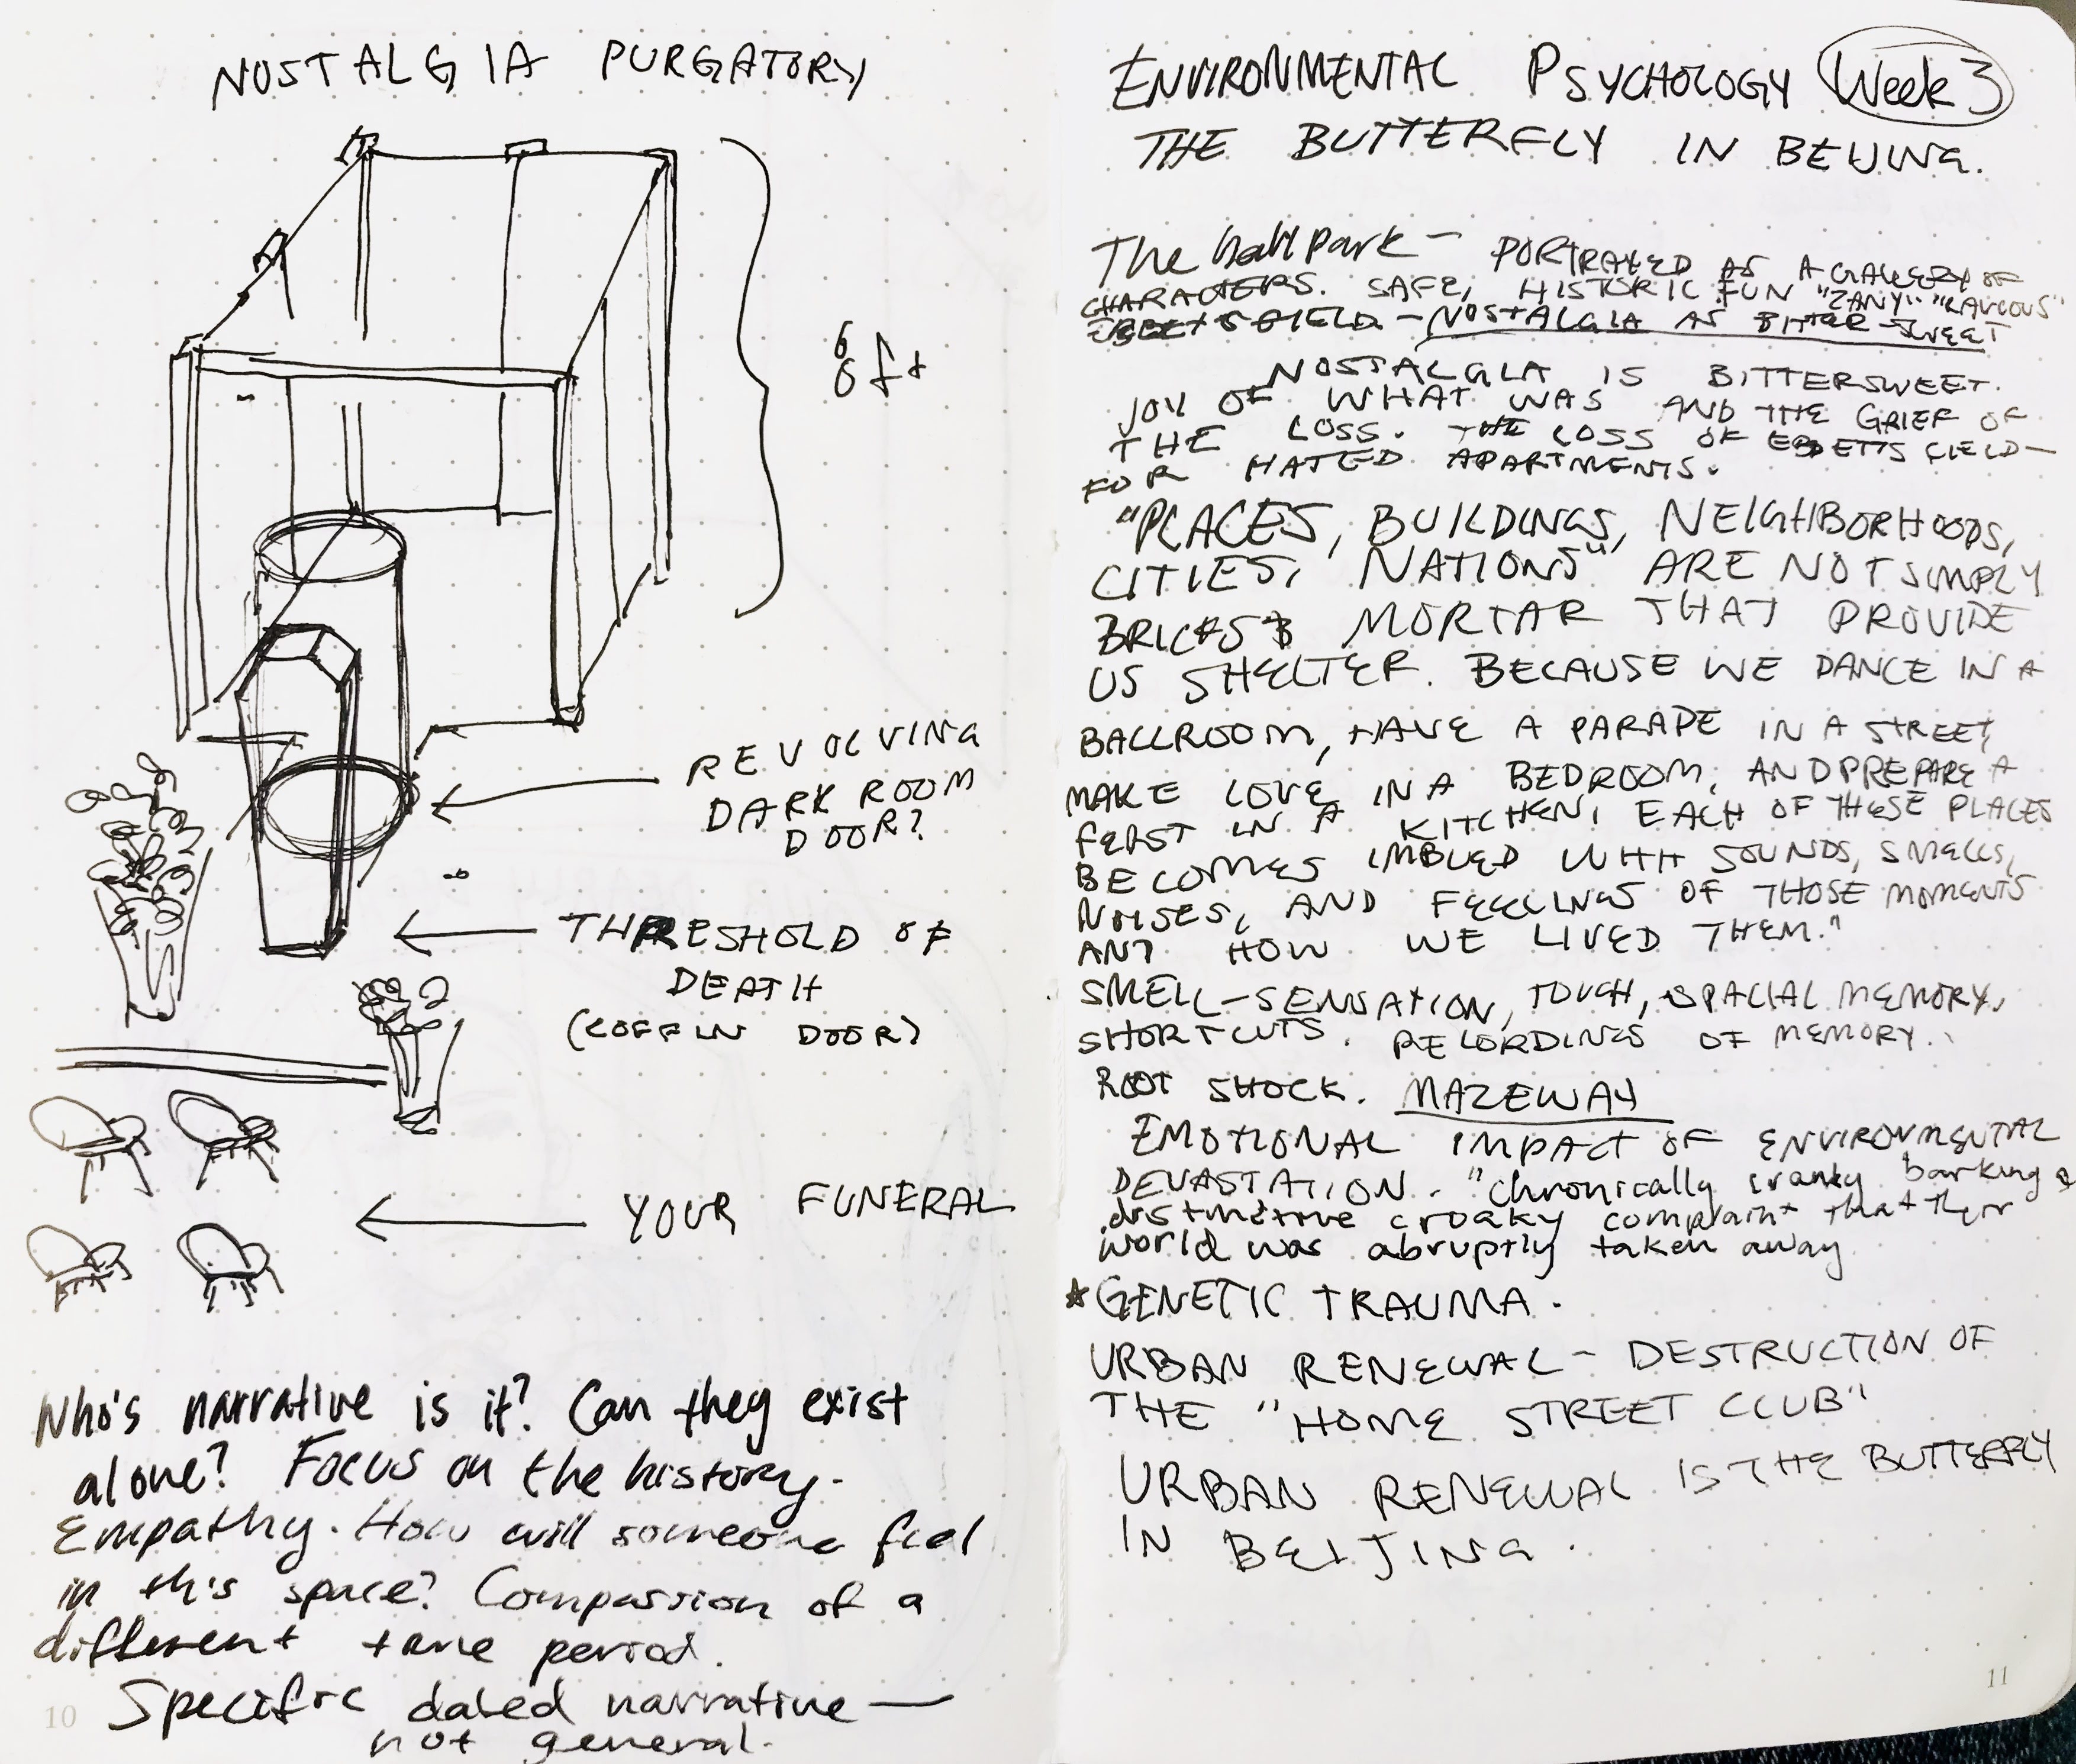 NOSTALGIA PURGATORY
6 ft
REVOLVING
DARK ROOM
DOOR?
THRESHOLD OF
DEATH
(COFFIN DOOR)
YOUR FUNERAL
Who's narrative is it? Can they exist
alone? Focus on the history.
Empathy. How will someone feel
in this space? Compassion of a
different time period.
Specific dated narrative —
not general.
10
ENVIRONMENTAL PSYCHOLOGY Week 3
THE BUTTERFLY IN BEIJING.
The ballpark — PORTRAYED AS A GALLERY OF
CHARACTERS. SAFE, HISTORIC FUN "ZANY" "RAUCOUS"
FIELD — NOSTALGIA AS BITTER-SWEET
NOSTALGIA IS BITTERSWEET.
JOY OF WHAT WAS AND THE GRIEF OF
THE LOSS. THE LOSS OF EBBETTS FIELD —
FOR HATED APARTMENTS.
"PLACES, BUILDINGS, NEIGHBORHOODS,
CITIES, NATIONS" ARE NOT SIMPLY
BRICKS & MORTAR THAT PROVIDE
US SHELTER. BECAUSE WE DANCE IN A
BALLROOM, HAVE A PARADE IN A STREET,
MAKE LOVE IN A BEDROOM, AND PREPARE A
FEAST IN A KITCHEN, EACH OF THESE PLACES
BECOMES IMBUED WITH SOUNDS, SMELLS,
NOISES, AND FEELINGS OF THOSE MOMENTS
AND HOW WE LIVED THEM."
SMELL-SENSATION, TOUCH, SPACIAL MEMORY,
SHORTCUTS. RECORDINGS OF MEMORY.
ROOT SHOCK. MAZEWAY
EMOTIONAL IMPACT OF ENVIRONMENTAL
DEVASTATION. "Chronically cranky barking &
distinctive croaky complaint that their
world was abruptly taken away
★GENETIC TRAUMA.
URBAN RENEWAL - DESTRUCTION OF
THE "HOME STREET CLUB"
URBAN RENEWAL IS THE BUTTERFLY
IN BEIJING.
11